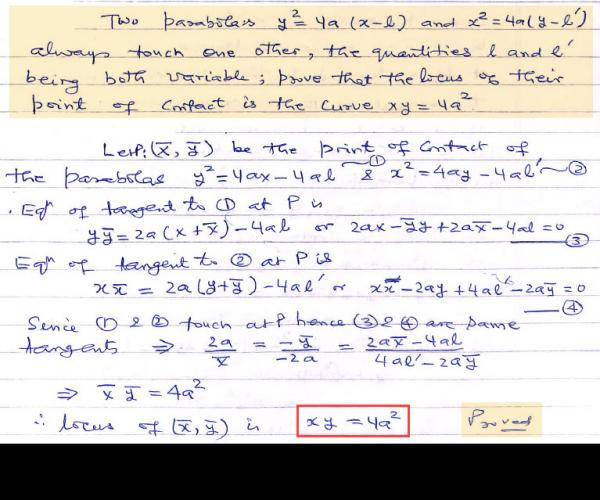 Two parabolas y² = 4a (x-l) and x² = 4a(y-l')
always touch one other, the quantities l and l'
being both variable; prove that the locus of their
point of contact is the curve xy = 4a²
Let P: (x̄, ȳ) be the point of contact of
the parabolas y² = 4ax - 4al ① & x² = 4ay - 4al' ②
∴ Eqⁿ of tangent to ① at P is
yȳ = 2a(x + x̄) - 4al or 2ax - ȳy + 2ax̄ - 4al = 0 ③
Eqⁿ of tangent to ② at P is
xx̄ = 2a(y+ȳ) - 4al' or xx̄ - 2ay + 4al' - 2aȳ = 0 ④
Since ① & ② touch at P hence ③ & ④ are same
tangents ⇒ 2a/x̄ = -ȳ/-2a = 2ax̄ - 4al/4al' - 2aȳ
⇒ x̄ ȳ = 4a²
∴ locus of (x̄, ȳ) is xy = 4a² Proved